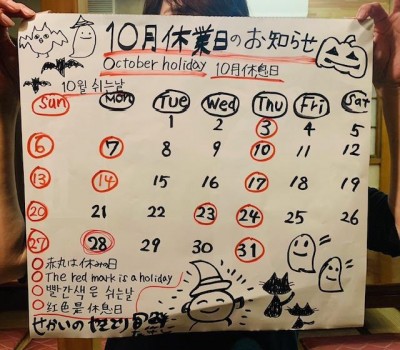 10月休業日のお知らせ
October holiday 10月休息日
10월 쉬는날
Sun Mon Tue Wed Thu Fri Sat
1 2 3 4 5
6 7 8 9 10 11 12
13 14 15 16 17 18 19
20 21 22 23 24 25 26
27 28 29 30 31
赤丸は休みの日
The red mark is a holiday
빨간색은 쉬는날
紅色是休息日
せかいの